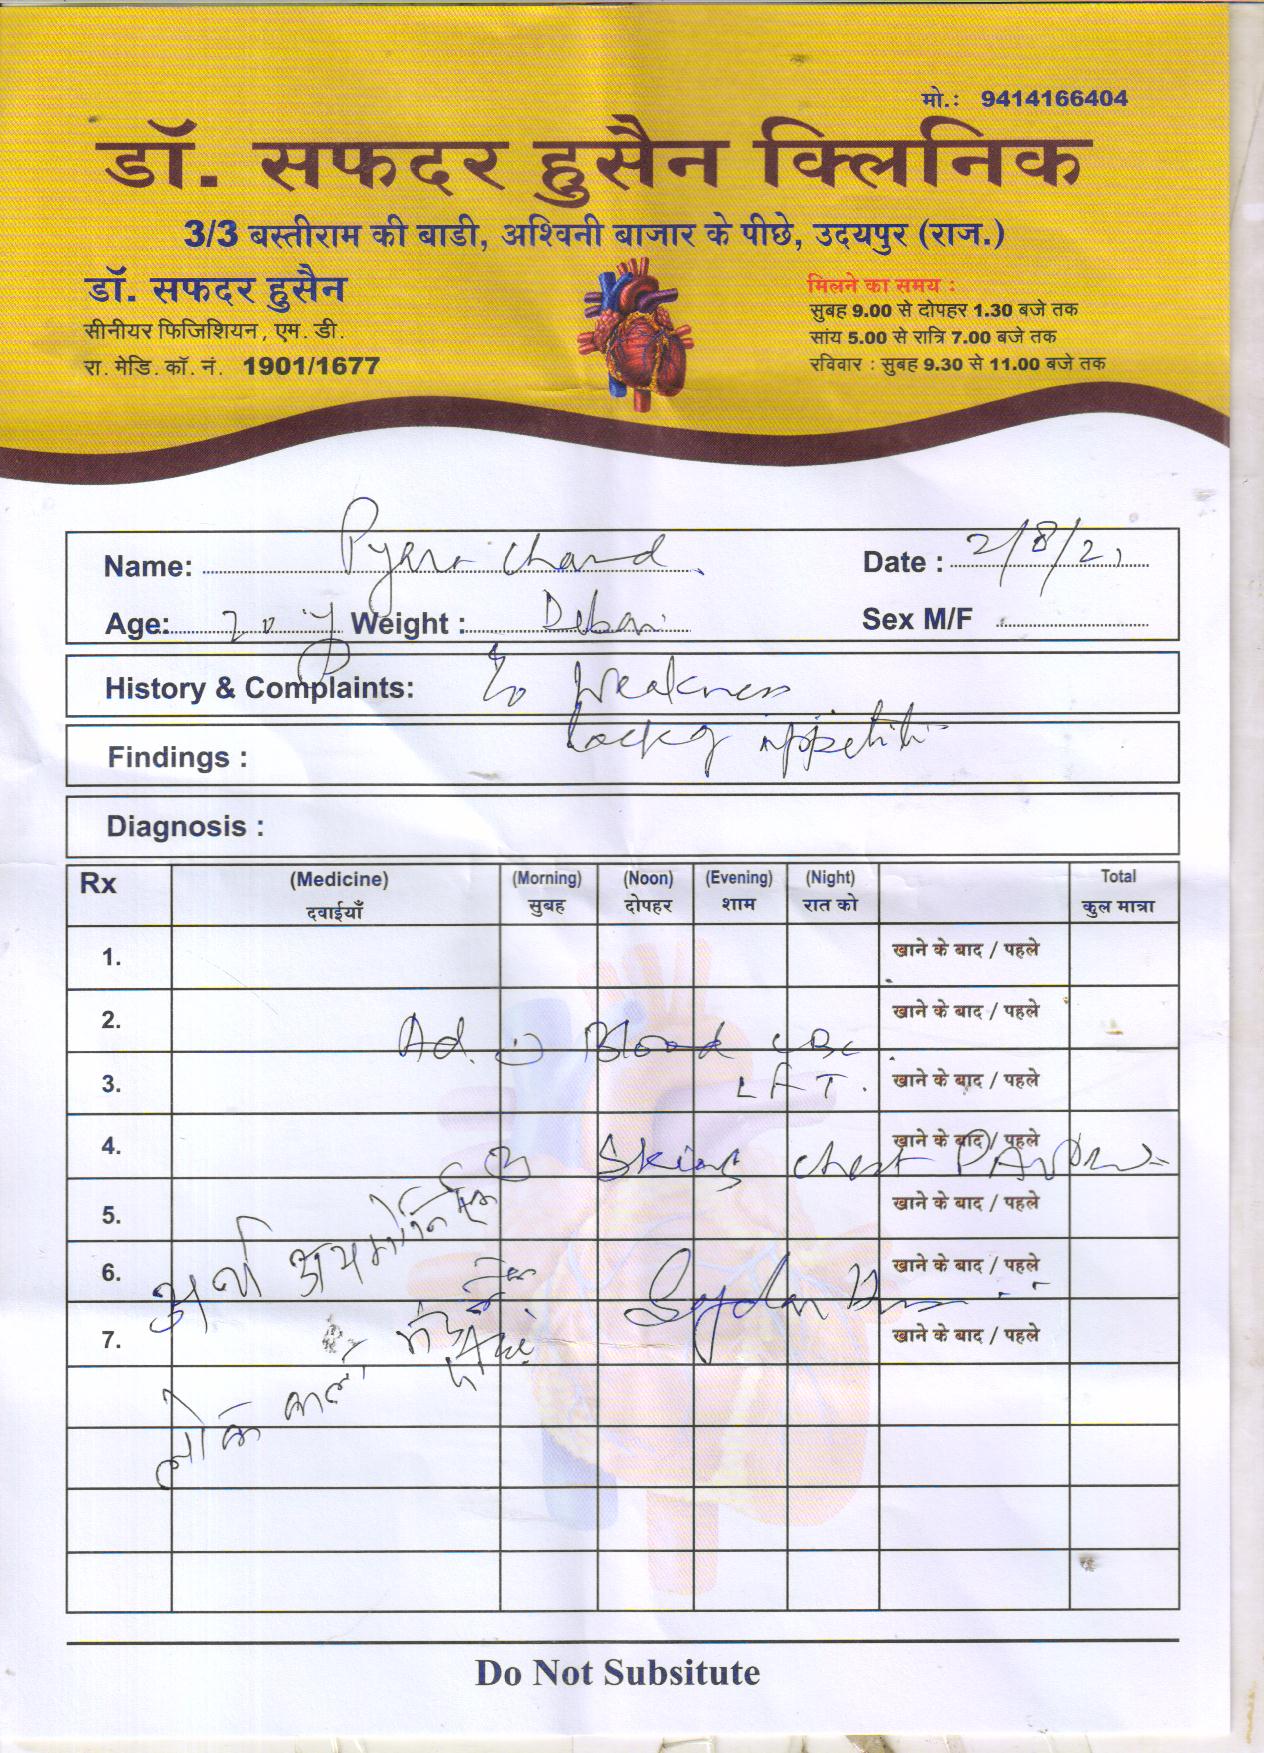 मो.: 9414166404
डॉ. सफदर हुसैन क्लिनिक
3/3 बस्तीराम की बाडी, अश्विनी बाजार के पीछे, उदयपुर (राज.)
डॉ. सफदर हुसैन
सीनीयर फिजिशियन, एम. डी.
रा. मेडि. कॉ. नं. 1901/1677
मिलने का समय :
सुबह 9.00 से दोपहर 1.30 बजे तक
सांय 5.00 से रात्रि 7.00 बजे तक
रविवार : सुबह 9.30 से 11.00 बजे तक
Name: Pyara Chand Date : 2/8/21
Age: 20 y Weight : Debari Sex M/F
History & Complaints: Weakness
appetite
Findings :
Diagnosis :
Rx (Medicine) (Morning) (Noon) (Evening) (Night) Total
दवाईयाँ सुबह दोपहर शाम रात को कुल मात्रा
1. खाने के बाद / पहले
2. खाने के बाद / पहले
Ad. Blood CBC
3. LFT. खाने के बाद / पहले
4. खाने के बाद / पहले
chest PA
5. खाने के बाद / पहले
6. खाने के बाद / पहले
7. खाने के बाद / पहले
Do Not Subsitute